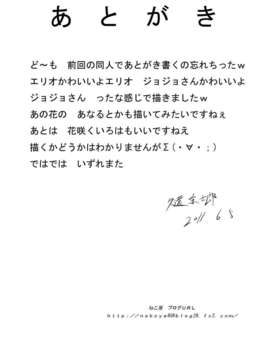 あとがき
ど～も　前回の同人であとがき書くの忘れちったｗ
エリオかわいいよエリオ　ジョジョさんかわいいよ
ジョジョさん　ったな感じで描きましたｗ
あの花の　あなるとかも描いてみたいですねぇ
あとは　花咲くいろはもいいですねえ
描くかどうかはわかりませんがΣ(・∀・；)
ではでは　いずれまた
2011. 6 5
ねこ屋　ブログURL